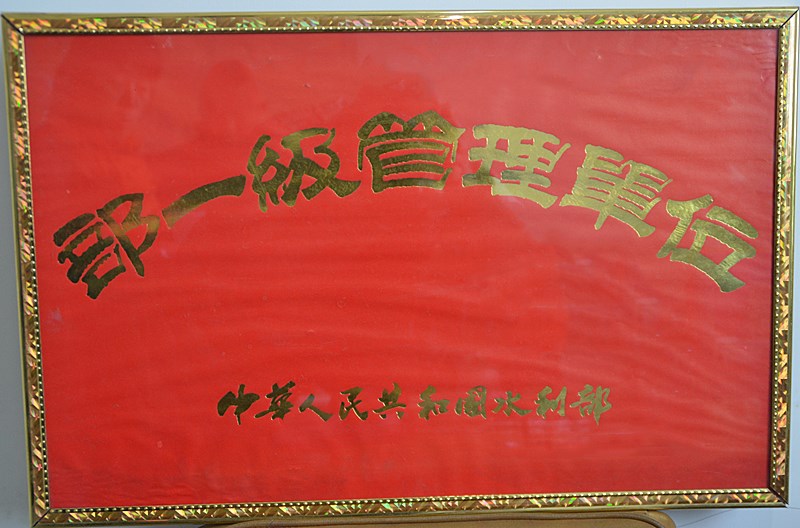 部一級管理單位
中华人民共和国水利部